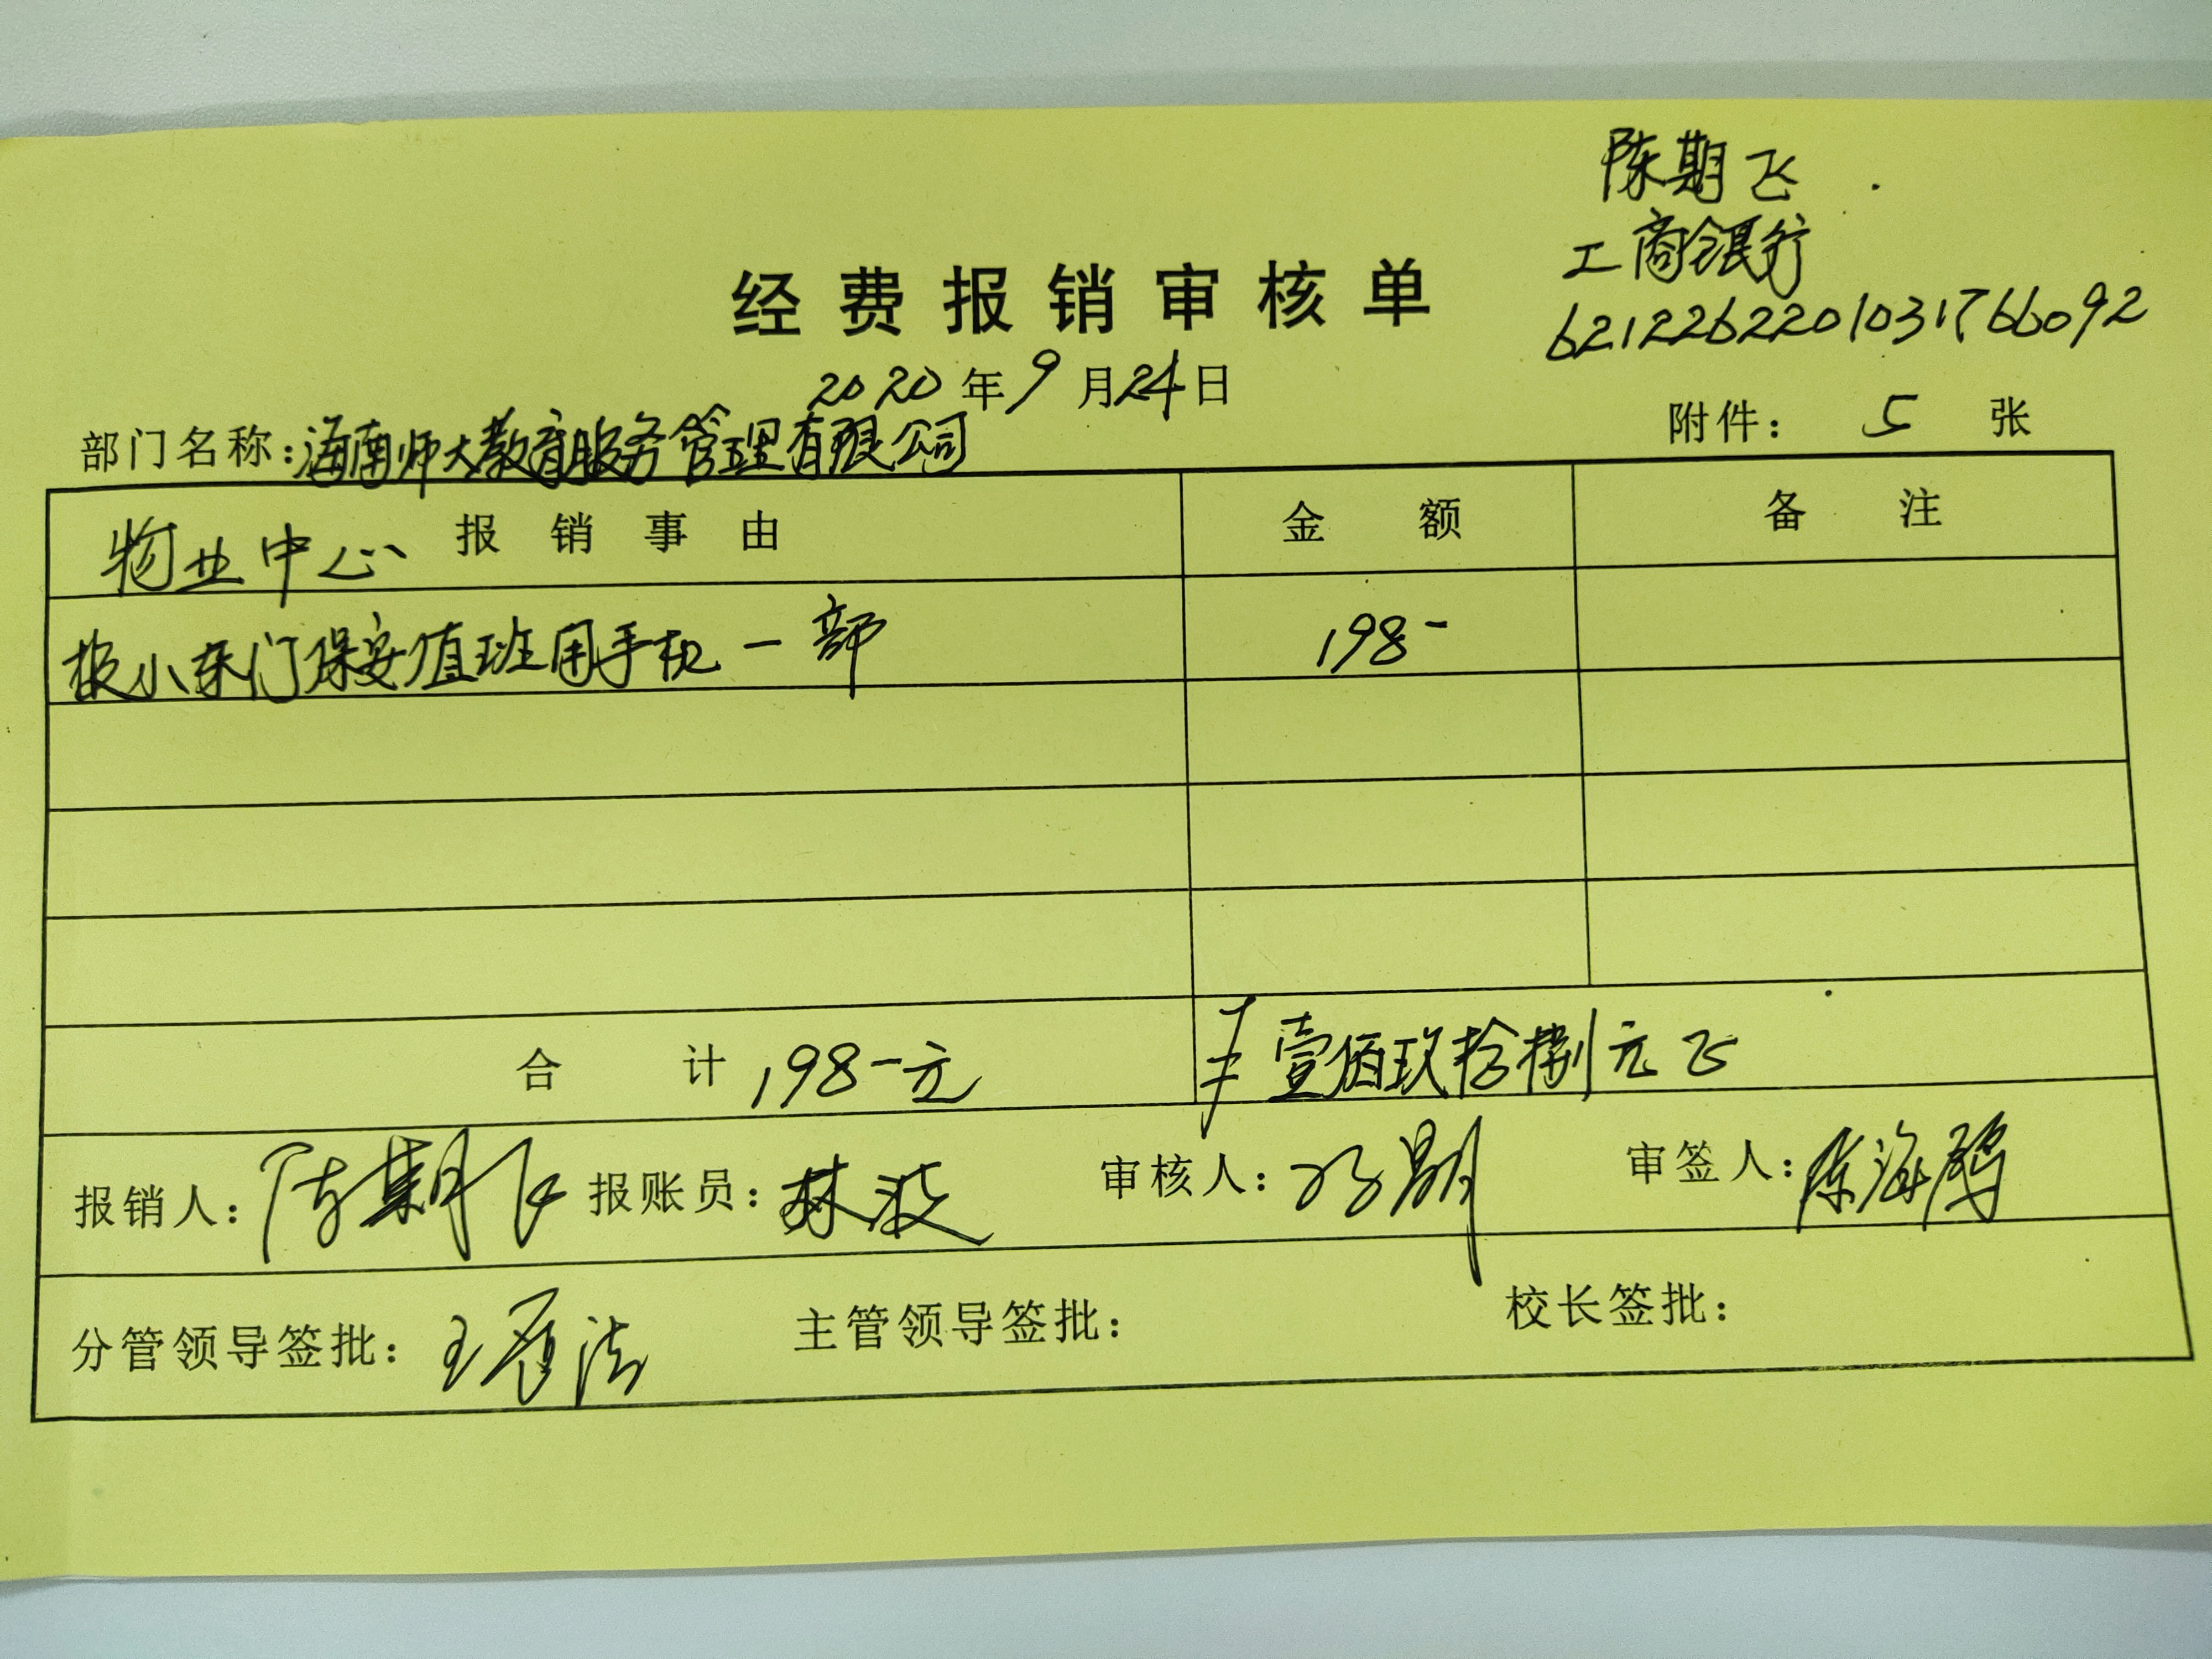 陈期飞
工商银行
6212262201031766092
经费报销审核单
2020年9月24日
部门名称:海南师大教育服务管理有限公司 附件: 5 张
物业中心 报销事由 金额 备注
报小东门保安值班用手机一部 198-
合计 198-元 壹佰玖拾捌元正
报销人:陈期飞 报账员:林波 审核人: 审签人:
分管领导签批: 主管领导签批: 校长签批: